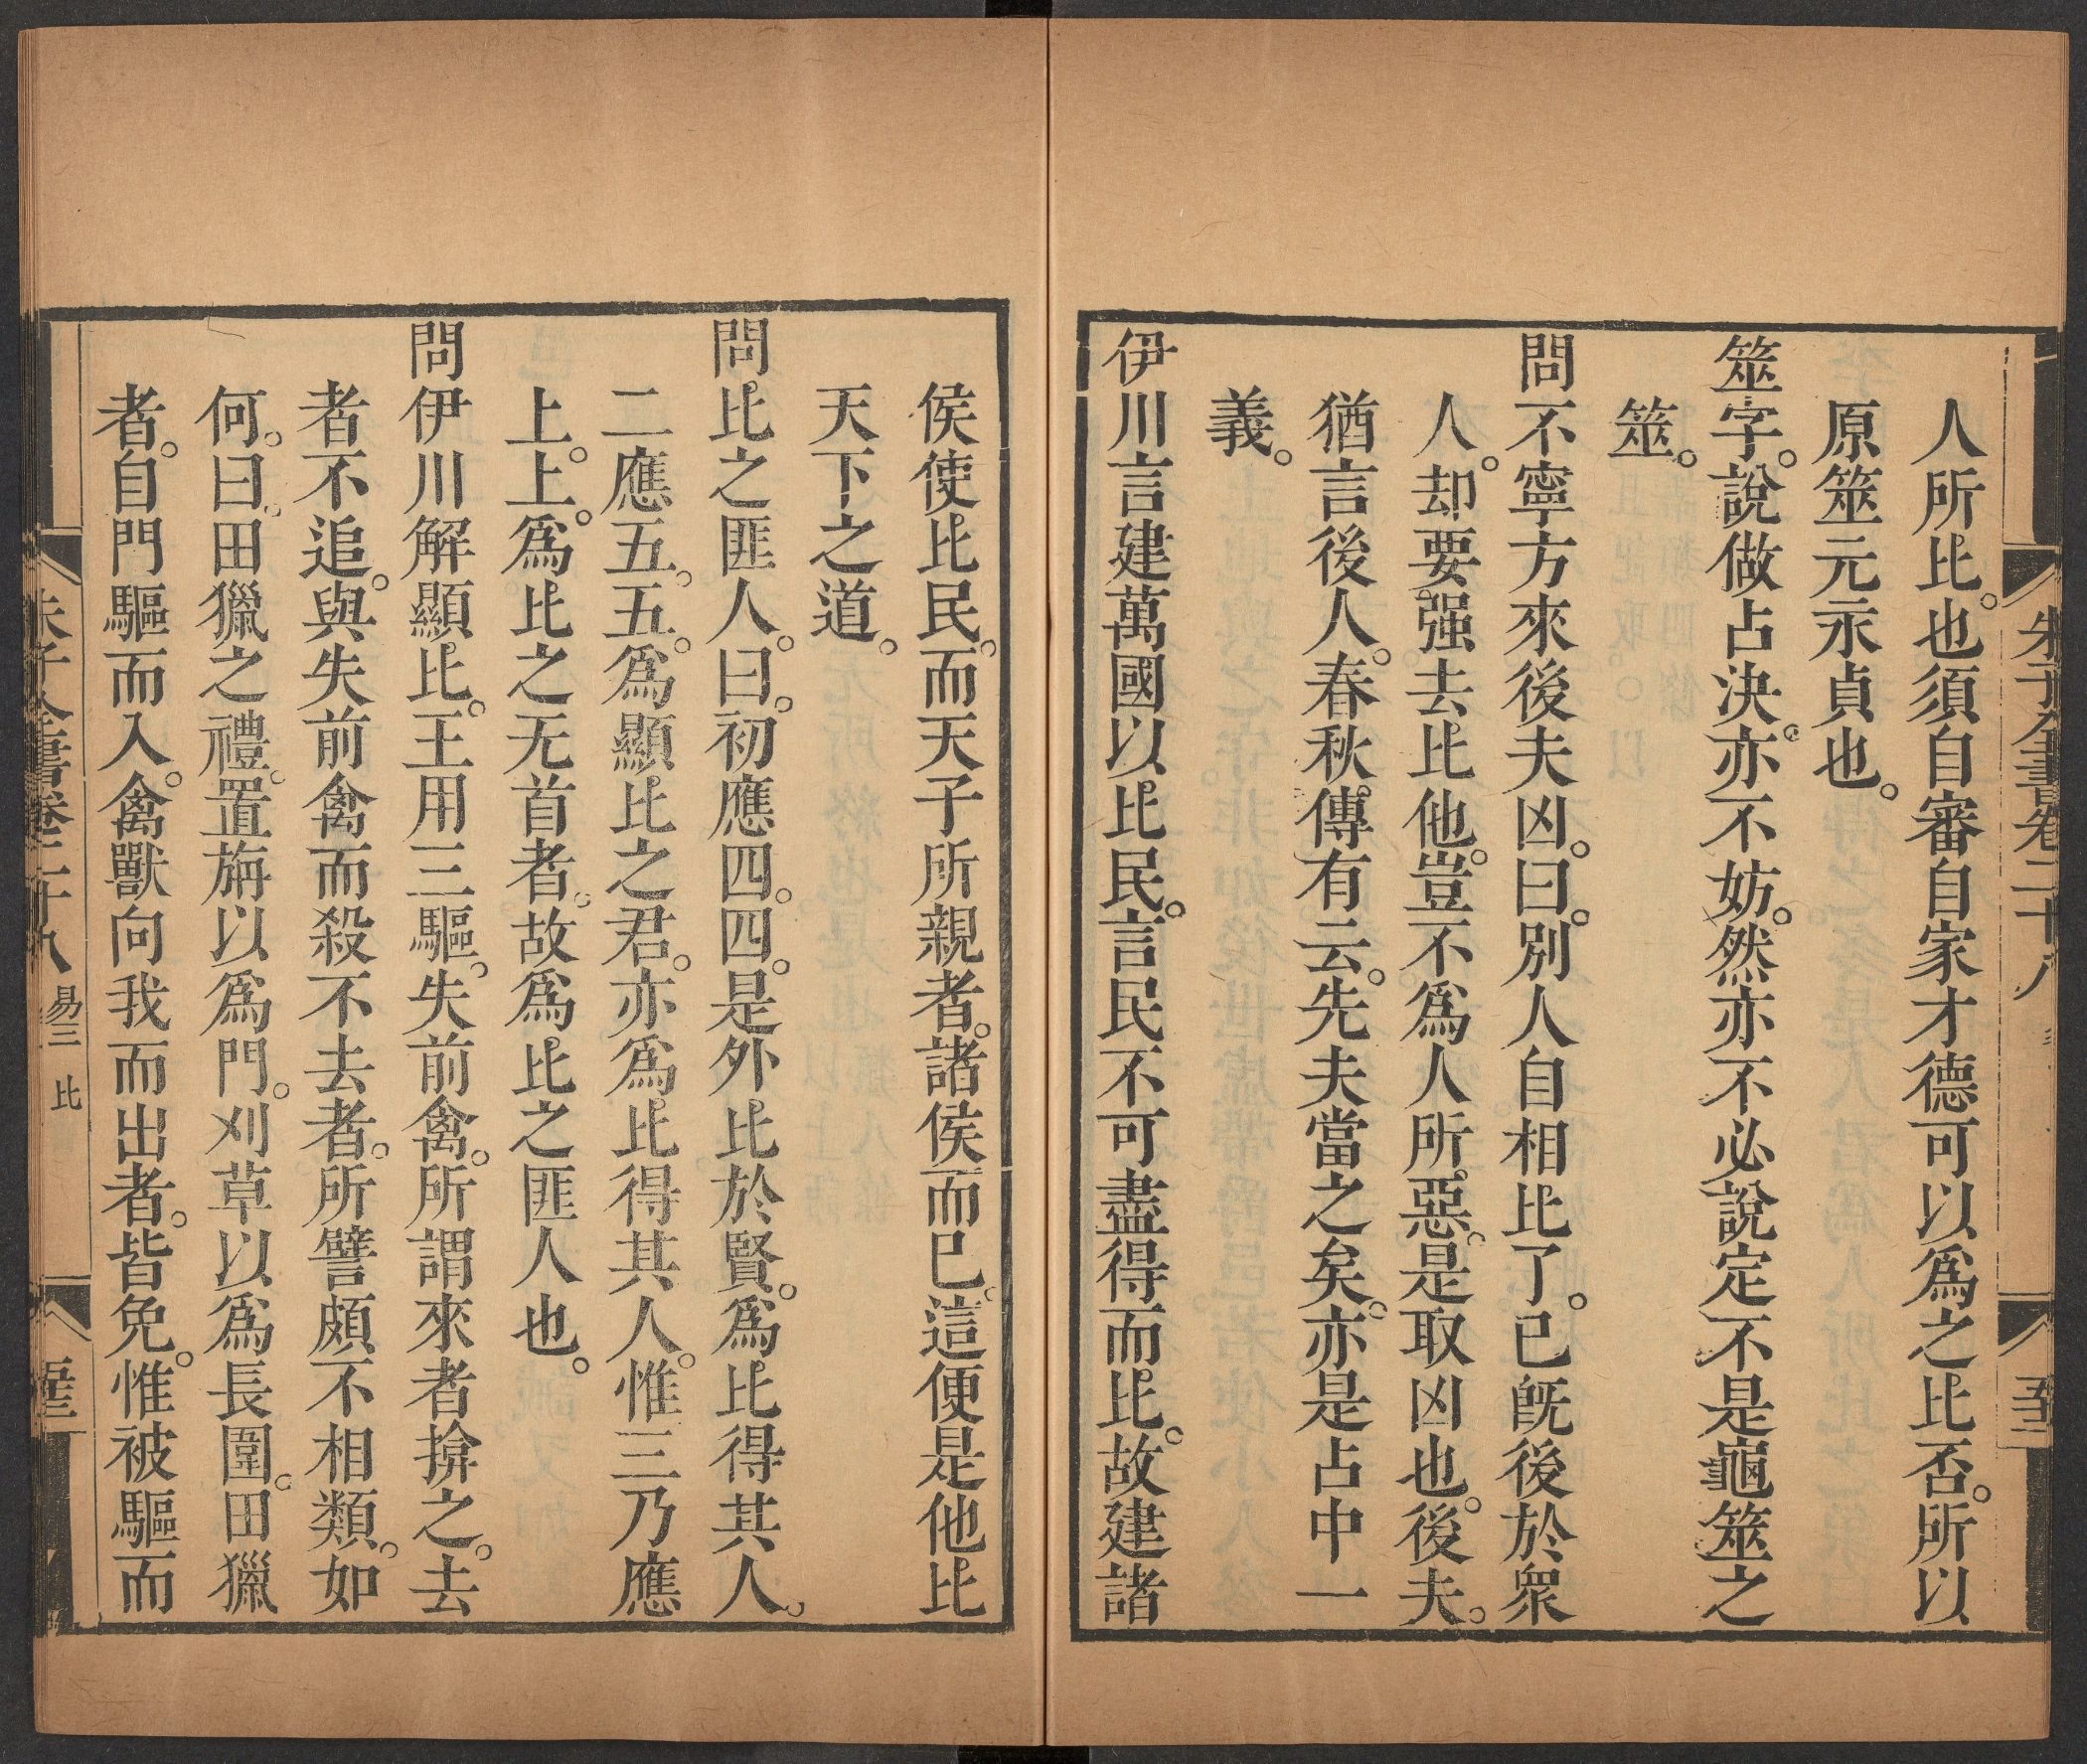 朱子全書卷二十八
人所比。也須自審自家才德可以爲之比否。所以
原筮元永貞也。
筮字。說做占決。亦不妨。然亦不必說定不是龜筮之
筮。
問不寧方來後夫凶。曰。別人自相比了。已旣後於衆
人。却要强去比他。豈不爲人所惡。是取凶也。後夫。
猶言後人。春秋傳有云。先夫當之矣。亦是占中一
義。
伊川言建萬國以比民。言民不可盡得而比。故建諸
侯使比民。而天子所親者。諸侯而已。這便是他比
天下之道。
問比之匪人。曰。初應四。四。是外比於賢。爲比得其人。
二應五。五。爲顯比之君。亦爲比得其人。惟三乃應
上。上。爲比之无首者。故爲比之匪人也。
問伊川解顯比。王用三驅。失前禽。所謂來者揜之。去
者不追。與失前禽而殺不去者。所譬頗不相類。如
何。曰。田獵之禮。置旃以爲門。刈草以爲長圍。田獵
者。自門驅而入。禽獸向我而出者。皆免。惟被驅而
朱子全書卷二十八 易三 比